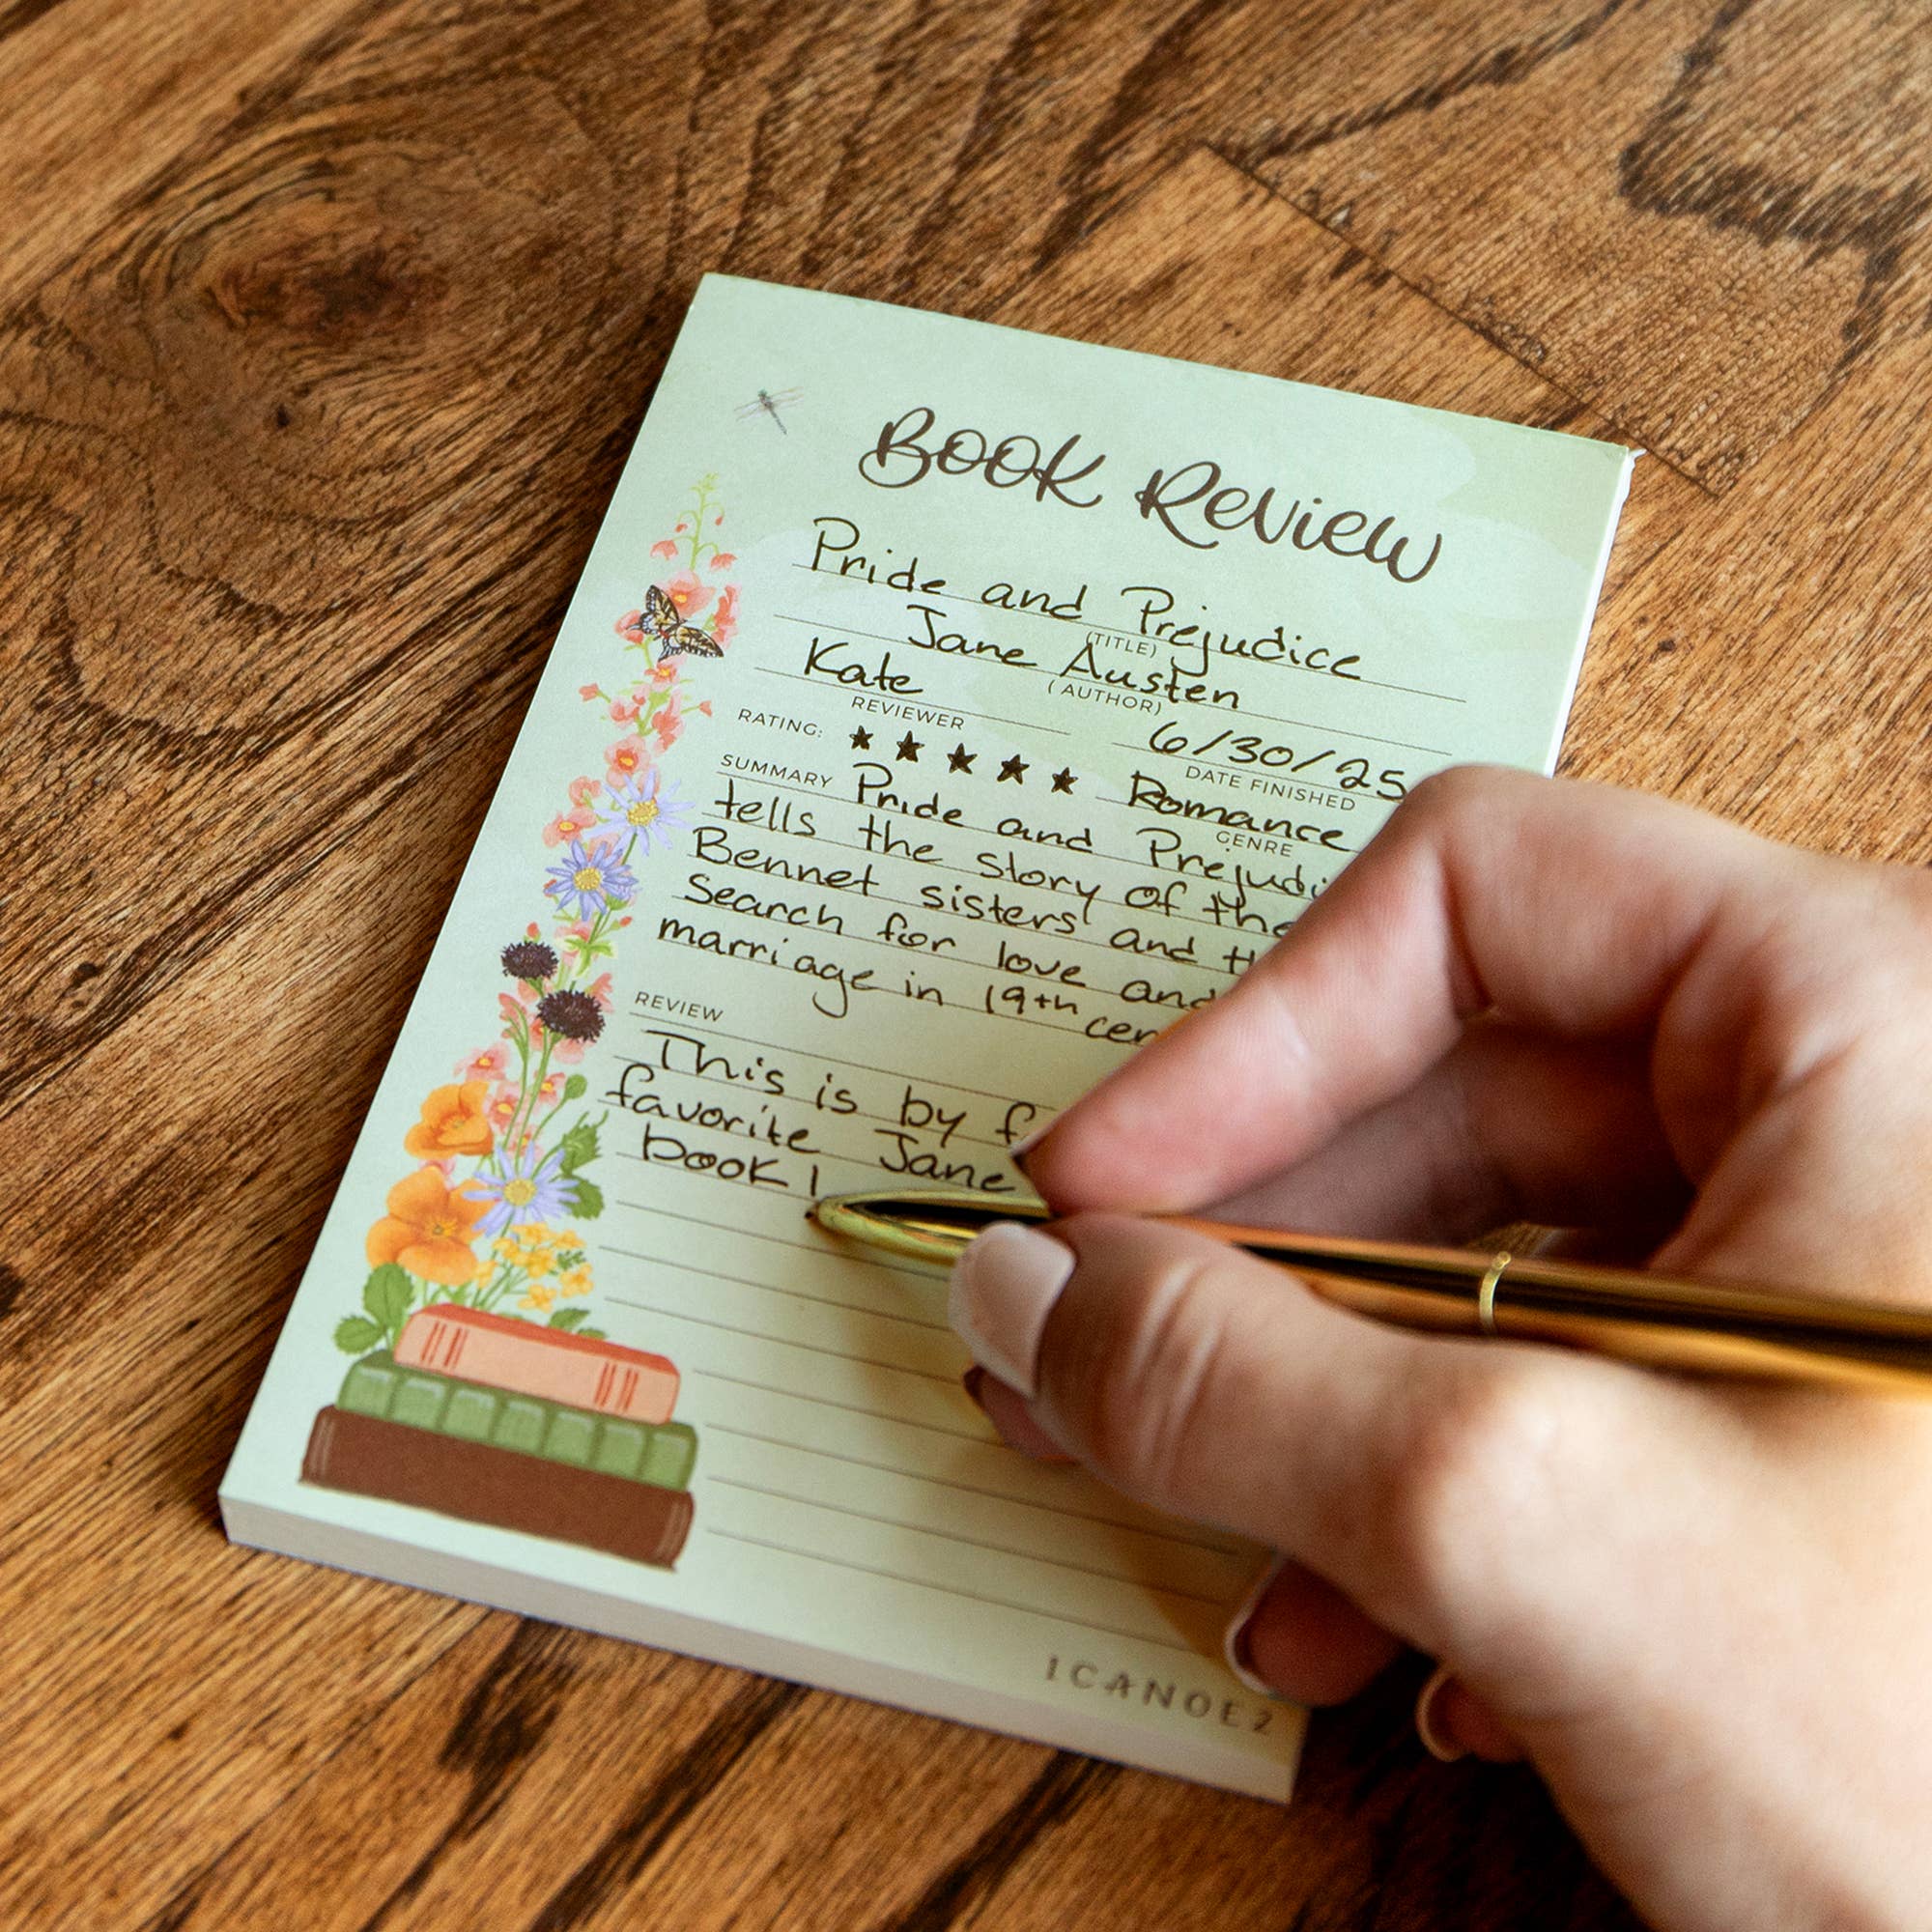 Book Review
Pride and Prejudice
(TITLE)
Jane Austen
(AUTHOR)
Kate 6/30/25
REVIEWER DATE FINISHED
RATING: ★ ★ ★ ★ ★ Romance
GENRE
SUMMARY Pride and
tells the story of the
Bennet sisters' and
search for love and
marriage in 19th
REVIEW
This is by
favorite Jane
book!
1CANOE2